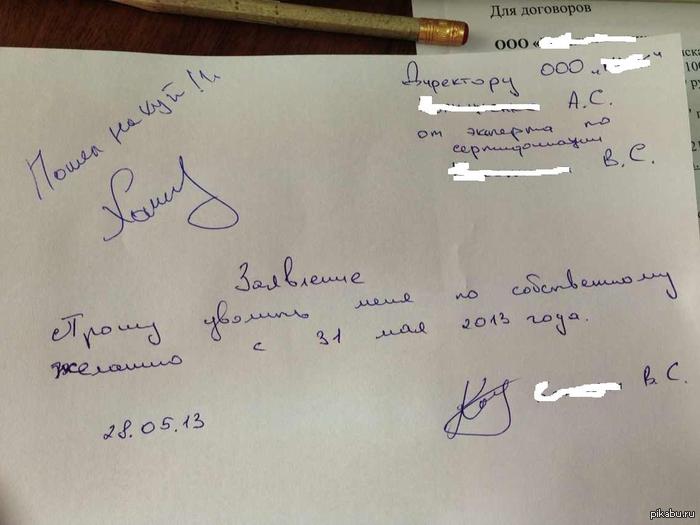 Для договоров
ООО «
Директору ООО „ “
А.С.
от эксперта по
сертификации
В.С.
Пошла нахуй!!!
Заявление
Прошу уволить меня по собственному
желанию с 31 мая 2013 года.
28.05.13
В.С.
pikabu.ru